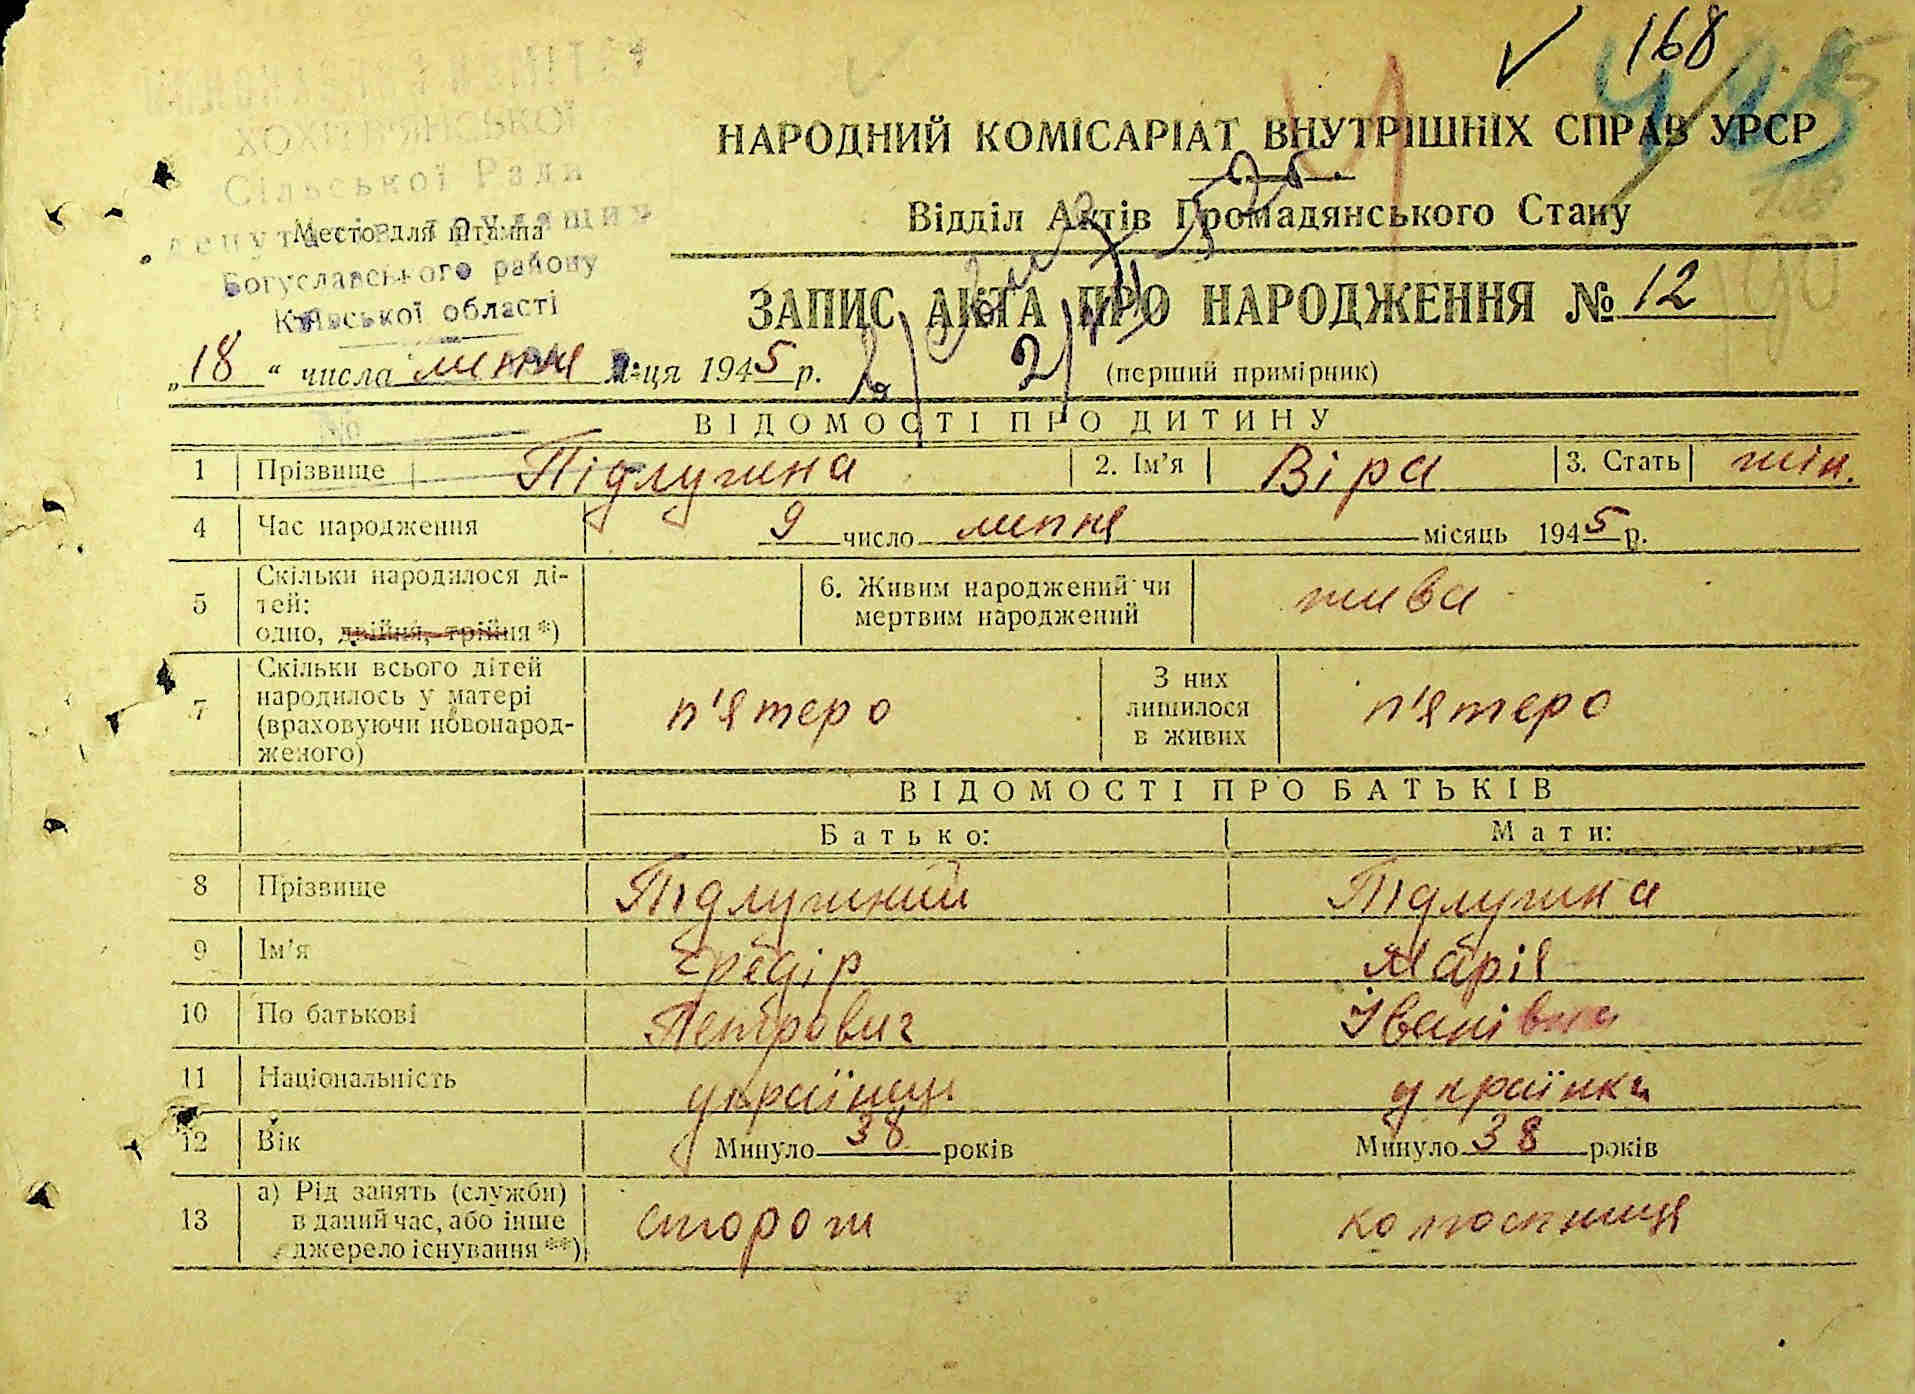 168
ХОХІТВЯНСЬКОЇ
НАРОДНИЙ КОМІСАРІАТ ВНУТРІШНІХ СПРАВ УРСР
Сільської Ради
Відділ Актів Громадянського Стану
депутатів трудящих
Место для штампа
Богуславського району
Київської області
ЗАПИС АКТА ПРО НАРОДЖЕННЯ № 12
„18“ числа липня м-ця 1945 р.
(перший примірник)
ВІДОМОСТІ ПРО ДИТИНУ
1 Прізвище Підлужна 2. Ім’я Віра 3. Стать жін.
4 Час народження 9 число липня місяць 1945 р.
5 Скільки народилося ді-
тей:
одно, двійня, трійня *)
6. Живим народжений чи
мертвим народжений
жива
7 Скільки всього дітей
народилось у матері
(враховуючи новонарод-
женого)
п'ятеро
З них
лишилося
в живих
п'ятеро
ВІДОМОСТІ ПРО БАТЬКІВ
Батько: Мати:
8 Прізвище
9 Ім’я Федір Марія
10 По батькові Петрович Іванівна
11 Національність українець українка
12 Вік Минуло 38 років Минуло 38 років
13 а) Рід занять (служби)
в даний час, або інше
джерело існування **)
сторож колгоспниця